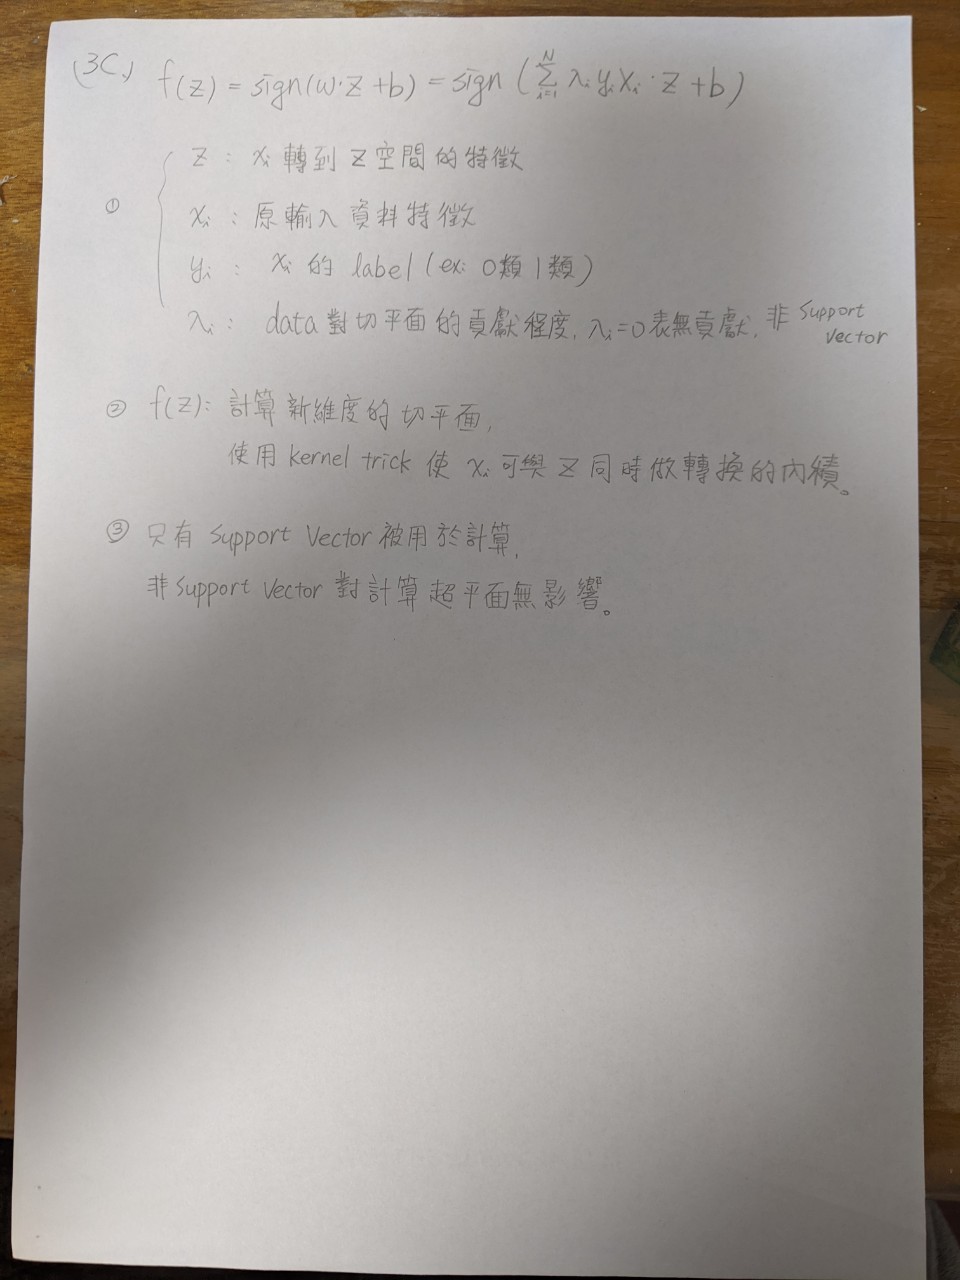 (3C.) f(z) = sign(w·z+b) = sign(∑_{i=1}^{N} λi yi xi · z + b)
z : xi 轉到 z 空間的特徵
① xi : 原輸入資料特徵
yi : xi 的 label (ex: 0類 1類)
λi : data 對切平面的貢獻程度, λi=0表無貢獻, 非 Support Vector
② f(z): 計算新維度的切平面,
使用 kernel trick 使 xi 可與 z 同時做轉換的內積。
③ 只有 Support Vector 被用於計算,
非 Support Vector 對計算超平面無影響。